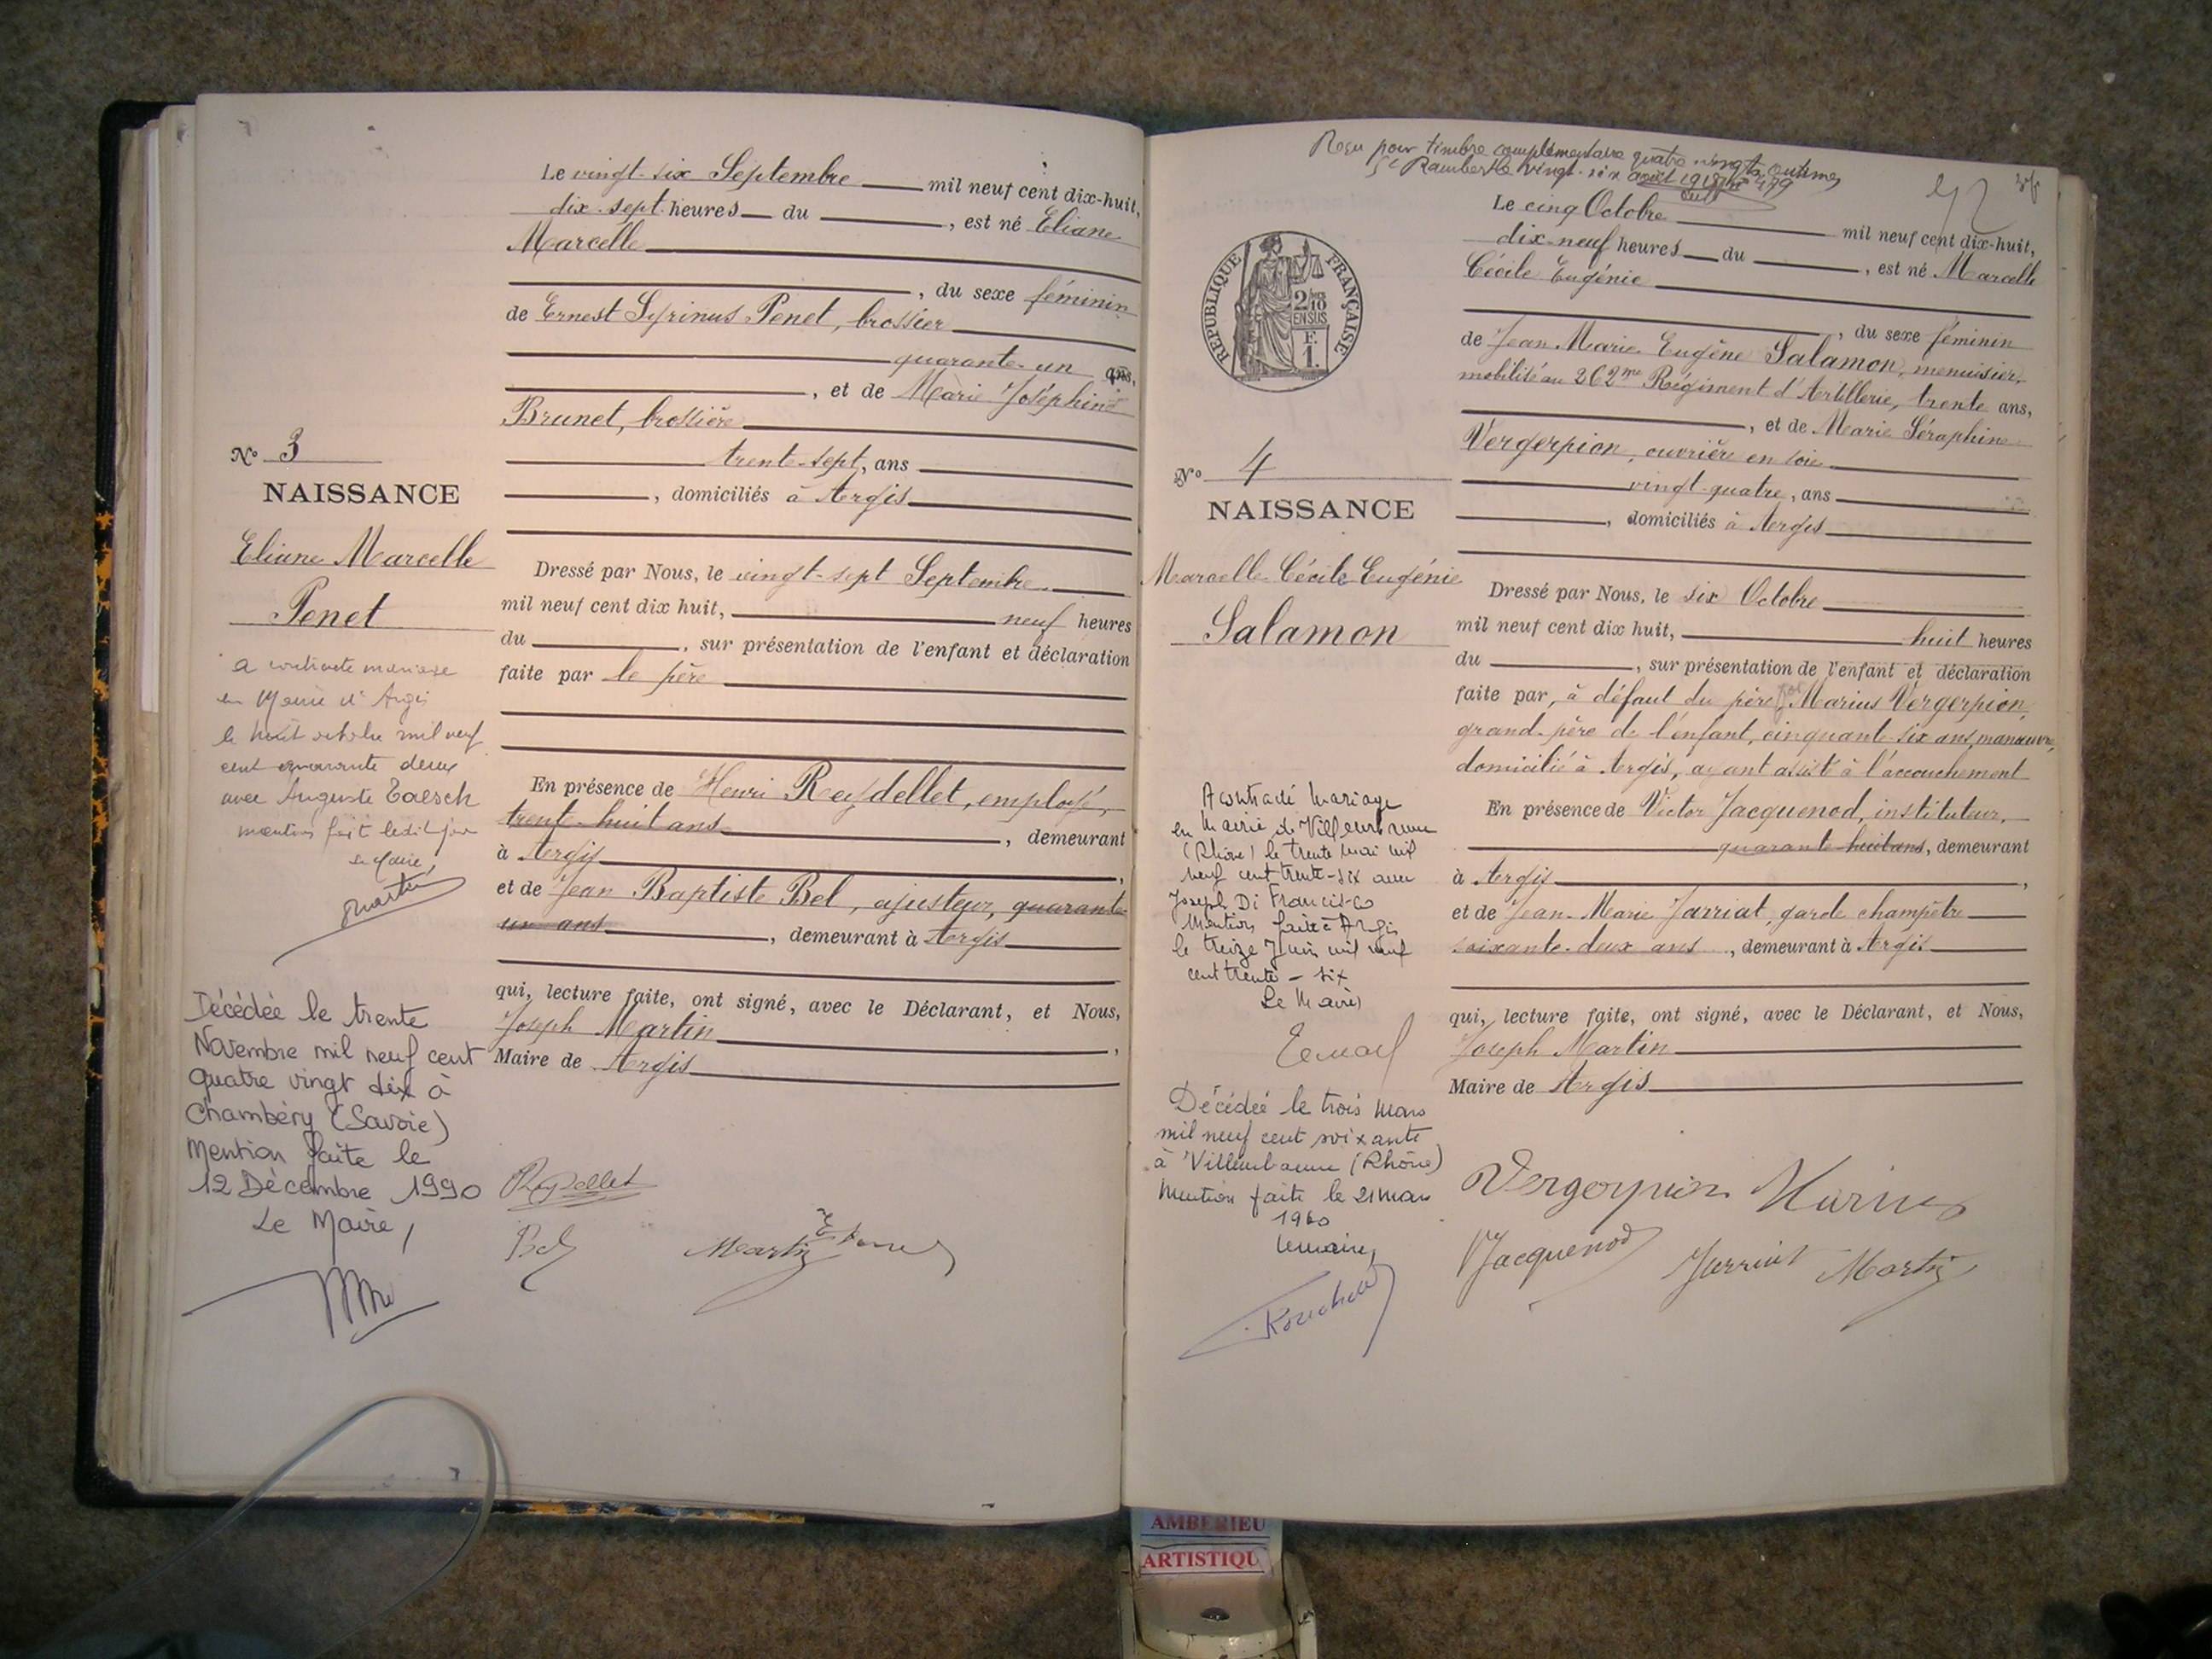 Le vingt-six Septembre mil neuf cent dix-huit,
dix-sept heures du , est né Eliane
Marcelle
, du sexe féminin
de Ernest Penet, brossier
quarante-un ans,
, et de Marie Joséphine
Brunet, brossière
trente-sept, ans
, domiciliés à Argis
Nº 3
NAISSANCE
Eliane Marcelle
Penet
Dressé par Nous, le vingt-sept Septembre
mil neuf cent dix huit, neuf heures
du , sur présentation de l'enfant et déclaration
faite par le père
En présence de Henri Reydellet, employé,
trent-huit ans , demeurant
à Argis ,
et de Jean Baptiste Bel, ajusteur, quarante
un ans , demeurant à Argis
qui, lecture faite, ont signé, avec le Déclarant, et Nous,
Joseph Martin ,
Maire de Argis
a contracté mariage
en Mairie d'Argis
le huit octobre mil neuf
cent quarante deux
avec Auguste
mention fait ledit jour
Le Maire,
Martin
Décédée le trente
Novembre mil neuf cent
quatre vingt dix à
Chambéry (Savoie)
Mention faite le
12 Décembre 1990
Le Maire,
Reydellet
Bel
Martin E Penet
Reçu pour timbre complémentaire quatre vingts centimes
St Rambert le vingt-six août 1918 nº 479
52
Le cinq Octobre mil neuf cent dix-huit,
dix-neuf heures du , est né Marcelle
Cécile Eugénie
, du sexe féminin
de Jean Marie Eugène Salamon, menuisier,
mobilisé au 262me Régiment d'Artillerie, trente ans,
, et de Marie Séraphine
Vergerpion, ouvrière en soie
vingt-quatre, ans
, domiciliés à Argis
REPUBLIQUE FRANÇAISE
2/10
EN SUS
F.
1.
Nº 4
NAISSANCE
Marcelle Cécile Eugénie
Salamon
Dressé par Nous, le six Octobre
mil neuf cent dix huit, huit heures
du , sur présentation de l'enfant et déclaration
faite par, à défaut du père par Marius Vergerpion,
grand-père de l'enfant, cinquante-six ans, manœuvre,
domicilié à Argis, ayant assisté à l'accouchement
En présence de Victor Jacquenod, instituteur,
quarante-huit ans, demeurant
à Argis ,
et de Jean-Marie Jarriat, garde champêtre
soixante-deux ans , demeurant à Argis
qui, lecture faite, ont signé, avec le Déclarant, et Nous,
Joseph Martin
Maire de Argis
A contracté mariage
en Mairie de Villeurbanne
(Rhône) le trente mai mil
neuf cent trente-six avec
Joseph Di Francisco
Mention faite à Argis
le treize Juin mil neuf
cent trente-six
Le Maire,
Décédée le trois Mars
mil neuf cent soixante
à Villeurbanne (Rhône)
Mention faite le 21 Mars
1960
Le maire,
Vergerpion Marius
VJacquenod Jarriat Martin
AMBERIEU
ARTISTIQU